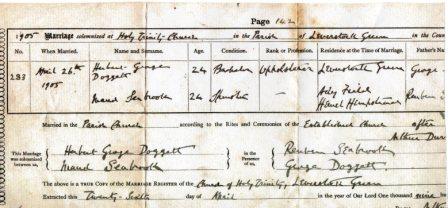 Page 142
1905 Marriage solemnized at Holy Trinity Church in the Parish of Leverstock Green in the Coun
No. When Married. Name and Surname. Age. Condition. Rank or Profession. Residence at the Time of Marriage. Father's Na
233 April 26th 1905 Herbert George Doggett 24 Bachelor Upholsterer Leverstock Green George
Maud Seabrook 24 Spinster — Hemel Hempstead Reuben S
Married in the Parish Church according to the Rites and Ceremonies of the Established Church after
This Marriage was solemnized between us, Herbert George Doggett Maud Seabrook in the Presence of us, Reuben Seabrook George Doggett
The above is a TRUE COPY of the MARRIAGE REGISTER of the Church of Holy Trinity, Leverstock Green
Extracted this Twenty-Sixth day of April in the year of Our Lord One thousand nine